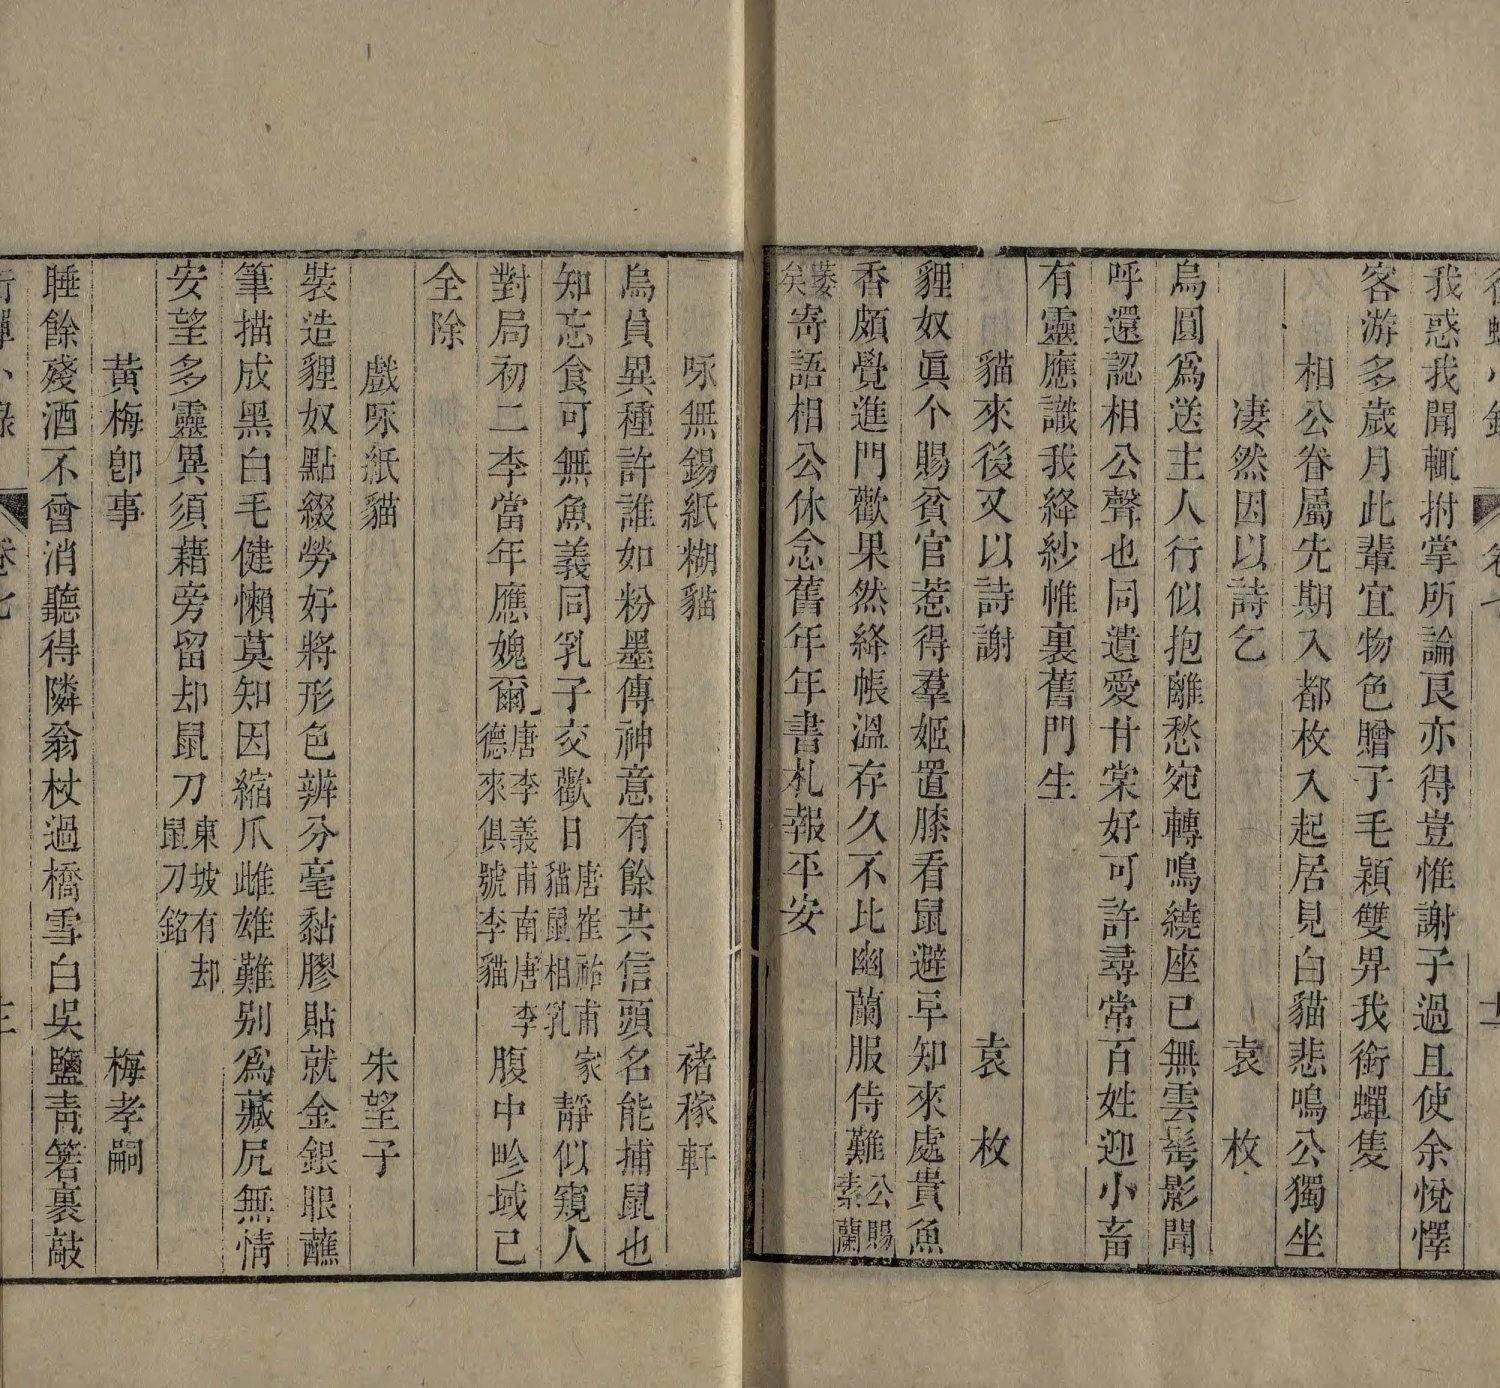 銜蟬小錄 卷七
我惑我聞輒拊掌所論良亦得豈惟謝子過且使余悅懌
客游多歲月此輩宜物色贈子毛穎雙畀我銜蟬隻
相公眷屬先期入都枚入起居見白貓悲鳴公獨坐
凄然因以詩乞 袁枚
烏圓爲送主人行似抱離愁宛轉鳴繞座已無雲髩影聞
呼還認相公聲也同遺愛甘棠好可許尋常百姓迎小畜
有靈應識我絳紗帷裏舊門生
貓來後又以詩謝 袁枚
貍奴眞个賜貧官惹得羣姬置膝看鼠避早知來處貴魚
香頗覺進門歡果然絳帳溫存久不比幽蘭服侍難公賜素蘭
萎矣寄語相公休念舊年年書札報平安
咏無錫紙糊貓 褚稼軒
烏員異種許誰如粉墨傳神意有餘共信頭名能捕鼠也
知忘食可無魚義同乳子交歡日唐崔祐甫家貓鼠相乳靜似窺人
對局初二李當年應媿爾唐李義甫南唐李德來俱號李貓腹中畛域已
全除
戲咏紙貓 朱望子
裝造貍奴點綴勞好將形色辨分毫黏膠貼就金銀眼蘸
筆描成黑白毛健懶莫知因縮爪雌雄難別爲藏尻無情
安望多靈異須藉旁留却鼠刀東坡有却鼠刀銘
黃梅卽事 梅孝嗣
睡餘殘酒不曾消聽得隣翁杖過橋雪白吳鹽靑箬裹敲
銜蟬小錄 卷七